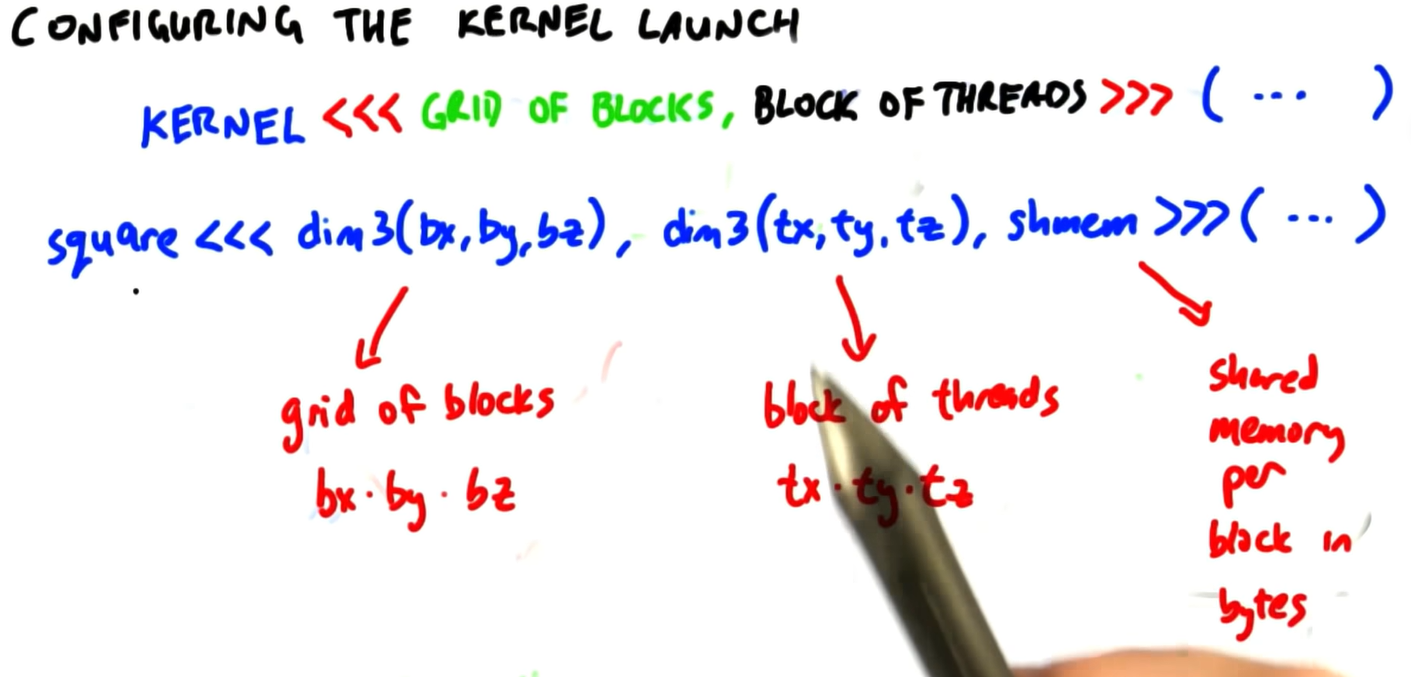 CONFIGURING THE KERNEL LAUNCH
KERNEL <<< GRID OF BLOCKS, BLOCK OF THREADS >>> ( ... )
square <<< dim3(bx, by, bz), dim3(tx, ty, tz), shmem >>> ( ... )
grid of blocks
bx · by · bz
block of threads
tx · ty · tz
shared
memory
per
block in
bytes